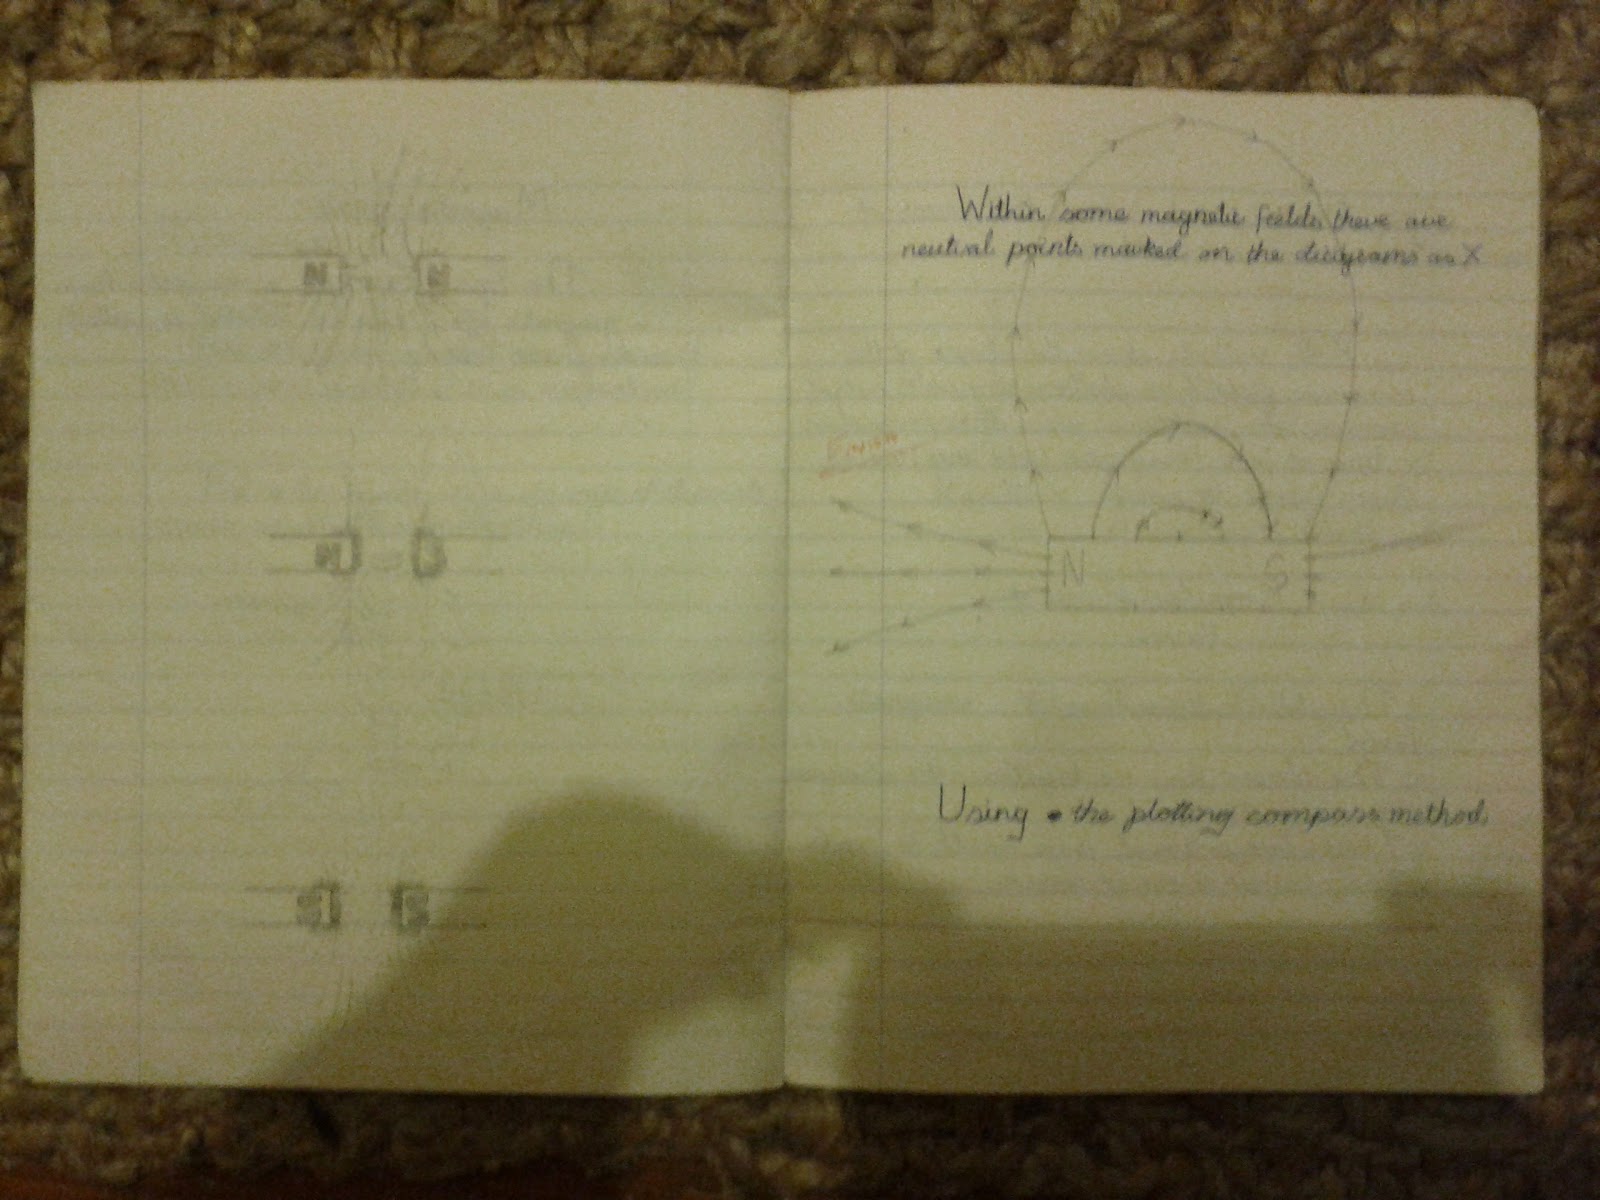 N N
N
S S
Within some magnetic feilds there are
neutral points marked on the diagrams as X
N S
Using the plotting compass method